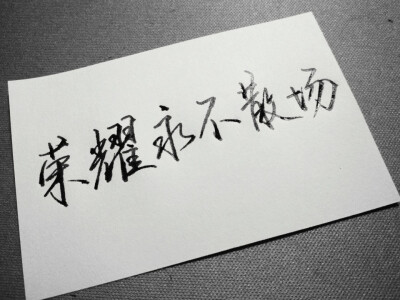 荣耀永不散场